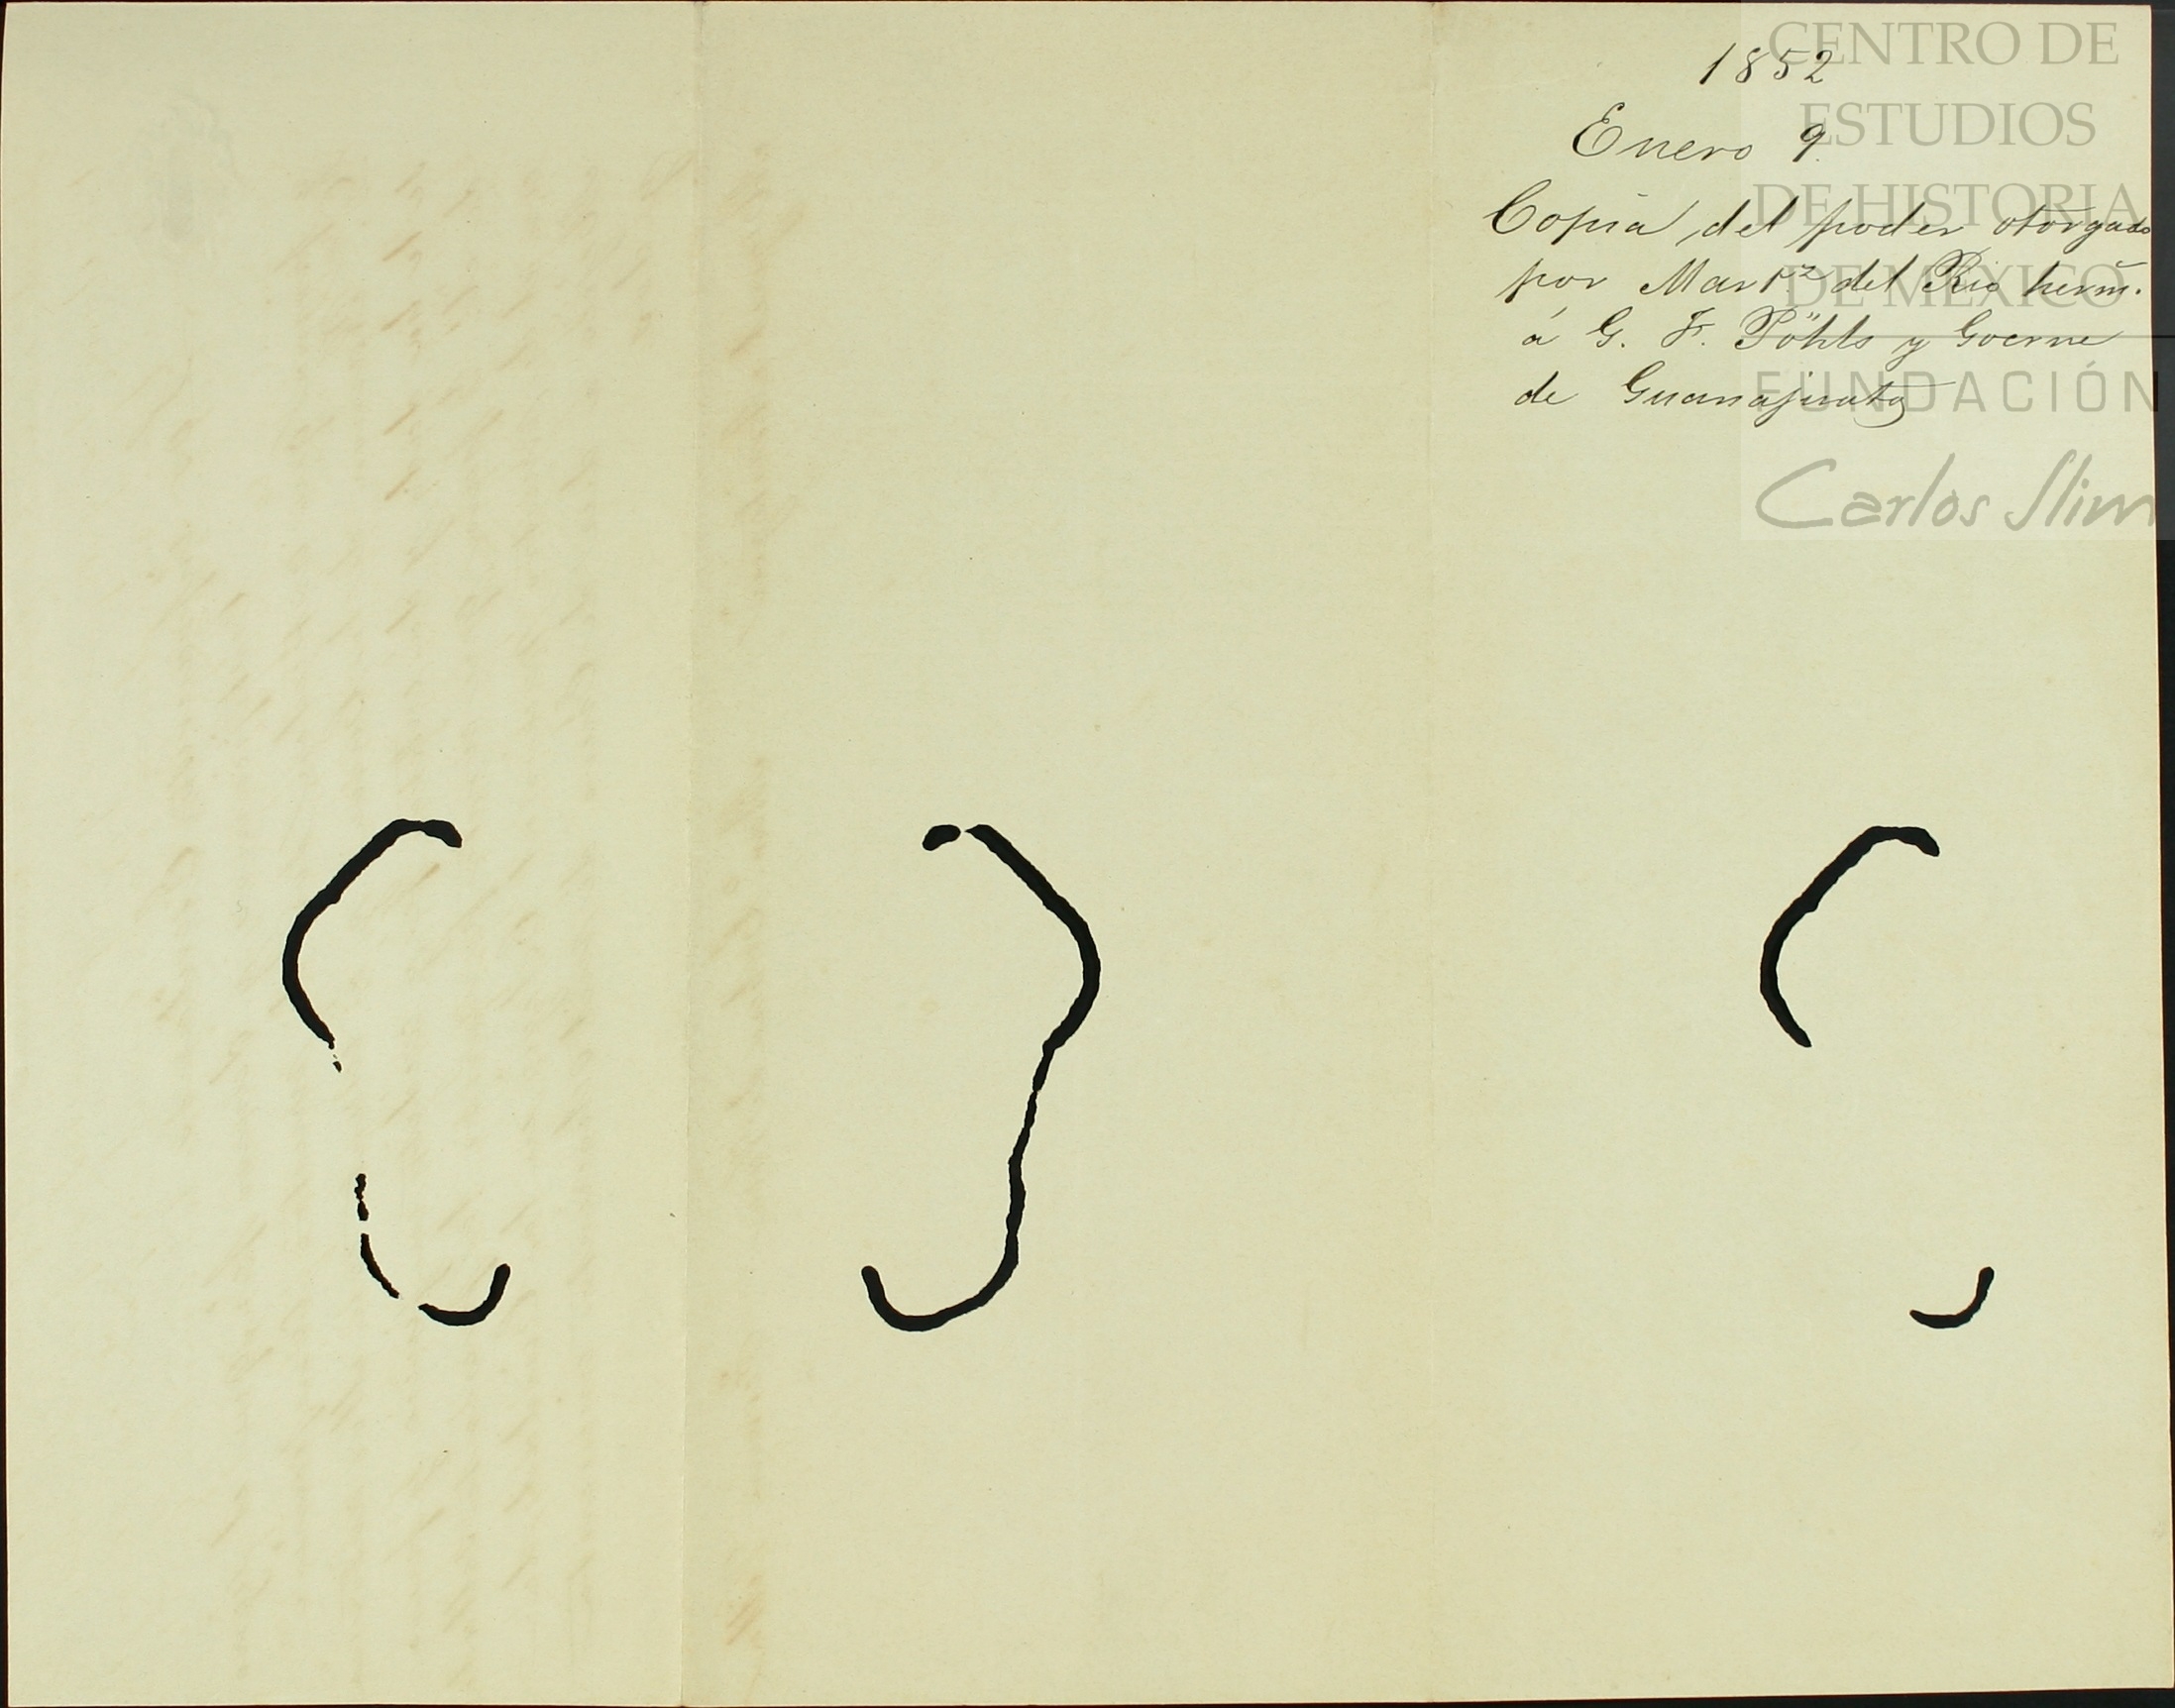 1852
Enero 9.
Copia del poder otorgado
por Mart.z del Rio herm.
á G. F. Pöhls y Goerne
de Guanajuato
CENTRO DE
ESTUDIOS
DE HISTORIA
DE MEXICO
FUNDACIÓN
Carlos Slim